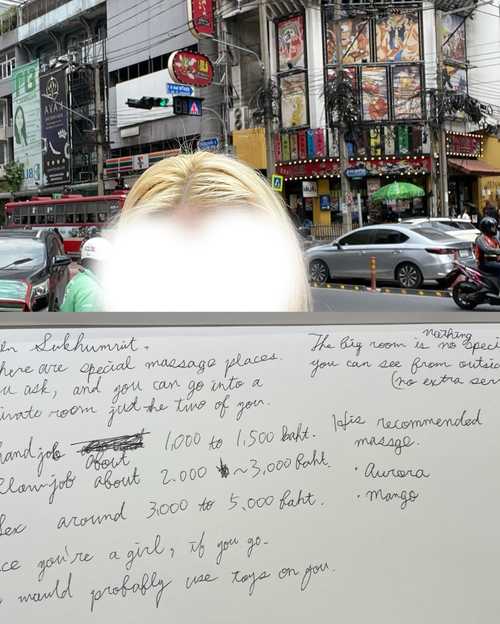 en Sukhumvit.
here are special massage places.
u ask, and you can go into a
ivate room just the two of you.
hand job about 1,000 to 1,500 baht.
Blowjob about 2.000 ~ 3,000 baht.
Sex around 3,000 to 5,000 baht.
ce you're a girl, if you go.
would probably use toys on you.
nothing
The big room is no speci
you can see from outsid
(no extra ser
His recommended
massge.
• Aurora
• Mango